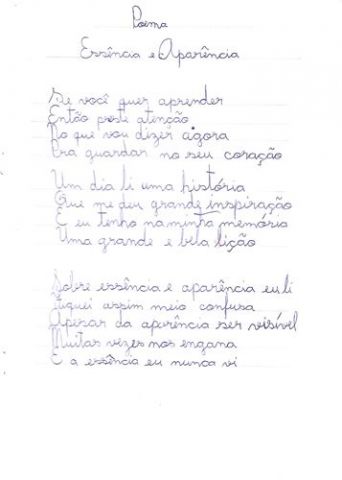 Poema
Essência e Aparência
Se você quer aprender
Então preste atenção
No que vou dizer agora
Pra guardar no seu coração
Um dia li uma história
Que me deu grande inspiração
E eu tenho na minha memória
Uma grande e bela lição
Sobre essência e aparência eu li
Fiquei assim meio confusa
Apesar da aparência ser visível
Muitas vezes nos engana
E a essência eu nunca vi